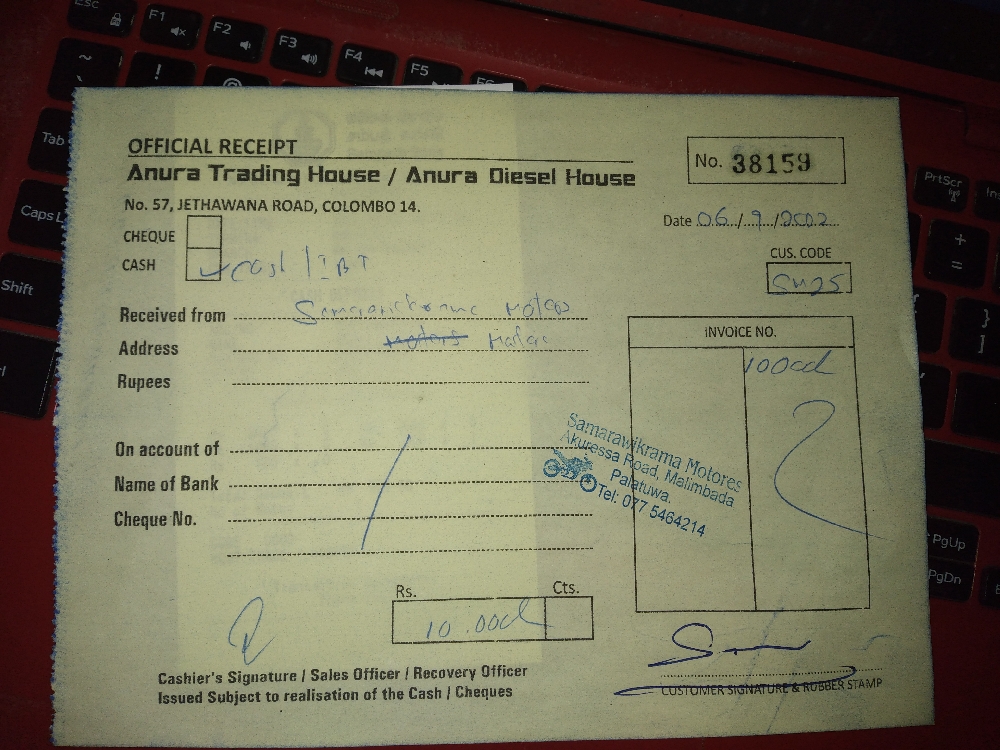 Esc
F1
F2
F3
F4
F5
Tab
Caps L
Shift
PrtScr
PgUp
PgDn
OFFICIAL RECEIPT
Anura Trading House / Anura Diesel House
No. 38159
No. 57, JETHAWANA ROAD, COLOMBO 14.
Date 06/9/2002
CHEQUE
CUS. CODE
CASH cash / IBT
Received from Motors
Address Motors
INVOICE NO.
Rupees
On account of
Name of Bank
Cheque No.
Samarawikrama Motores
Akuressa Road, Malimbada
Palatuwa.
Tel: 077 5464214
Rs. Cts.
Cashier's Signature / Sales Officer / Recovery Officer
Issued Subject to realisation of the Cash / Cheques
CUSTOMER SIGNATURE & RUBBER STAMP